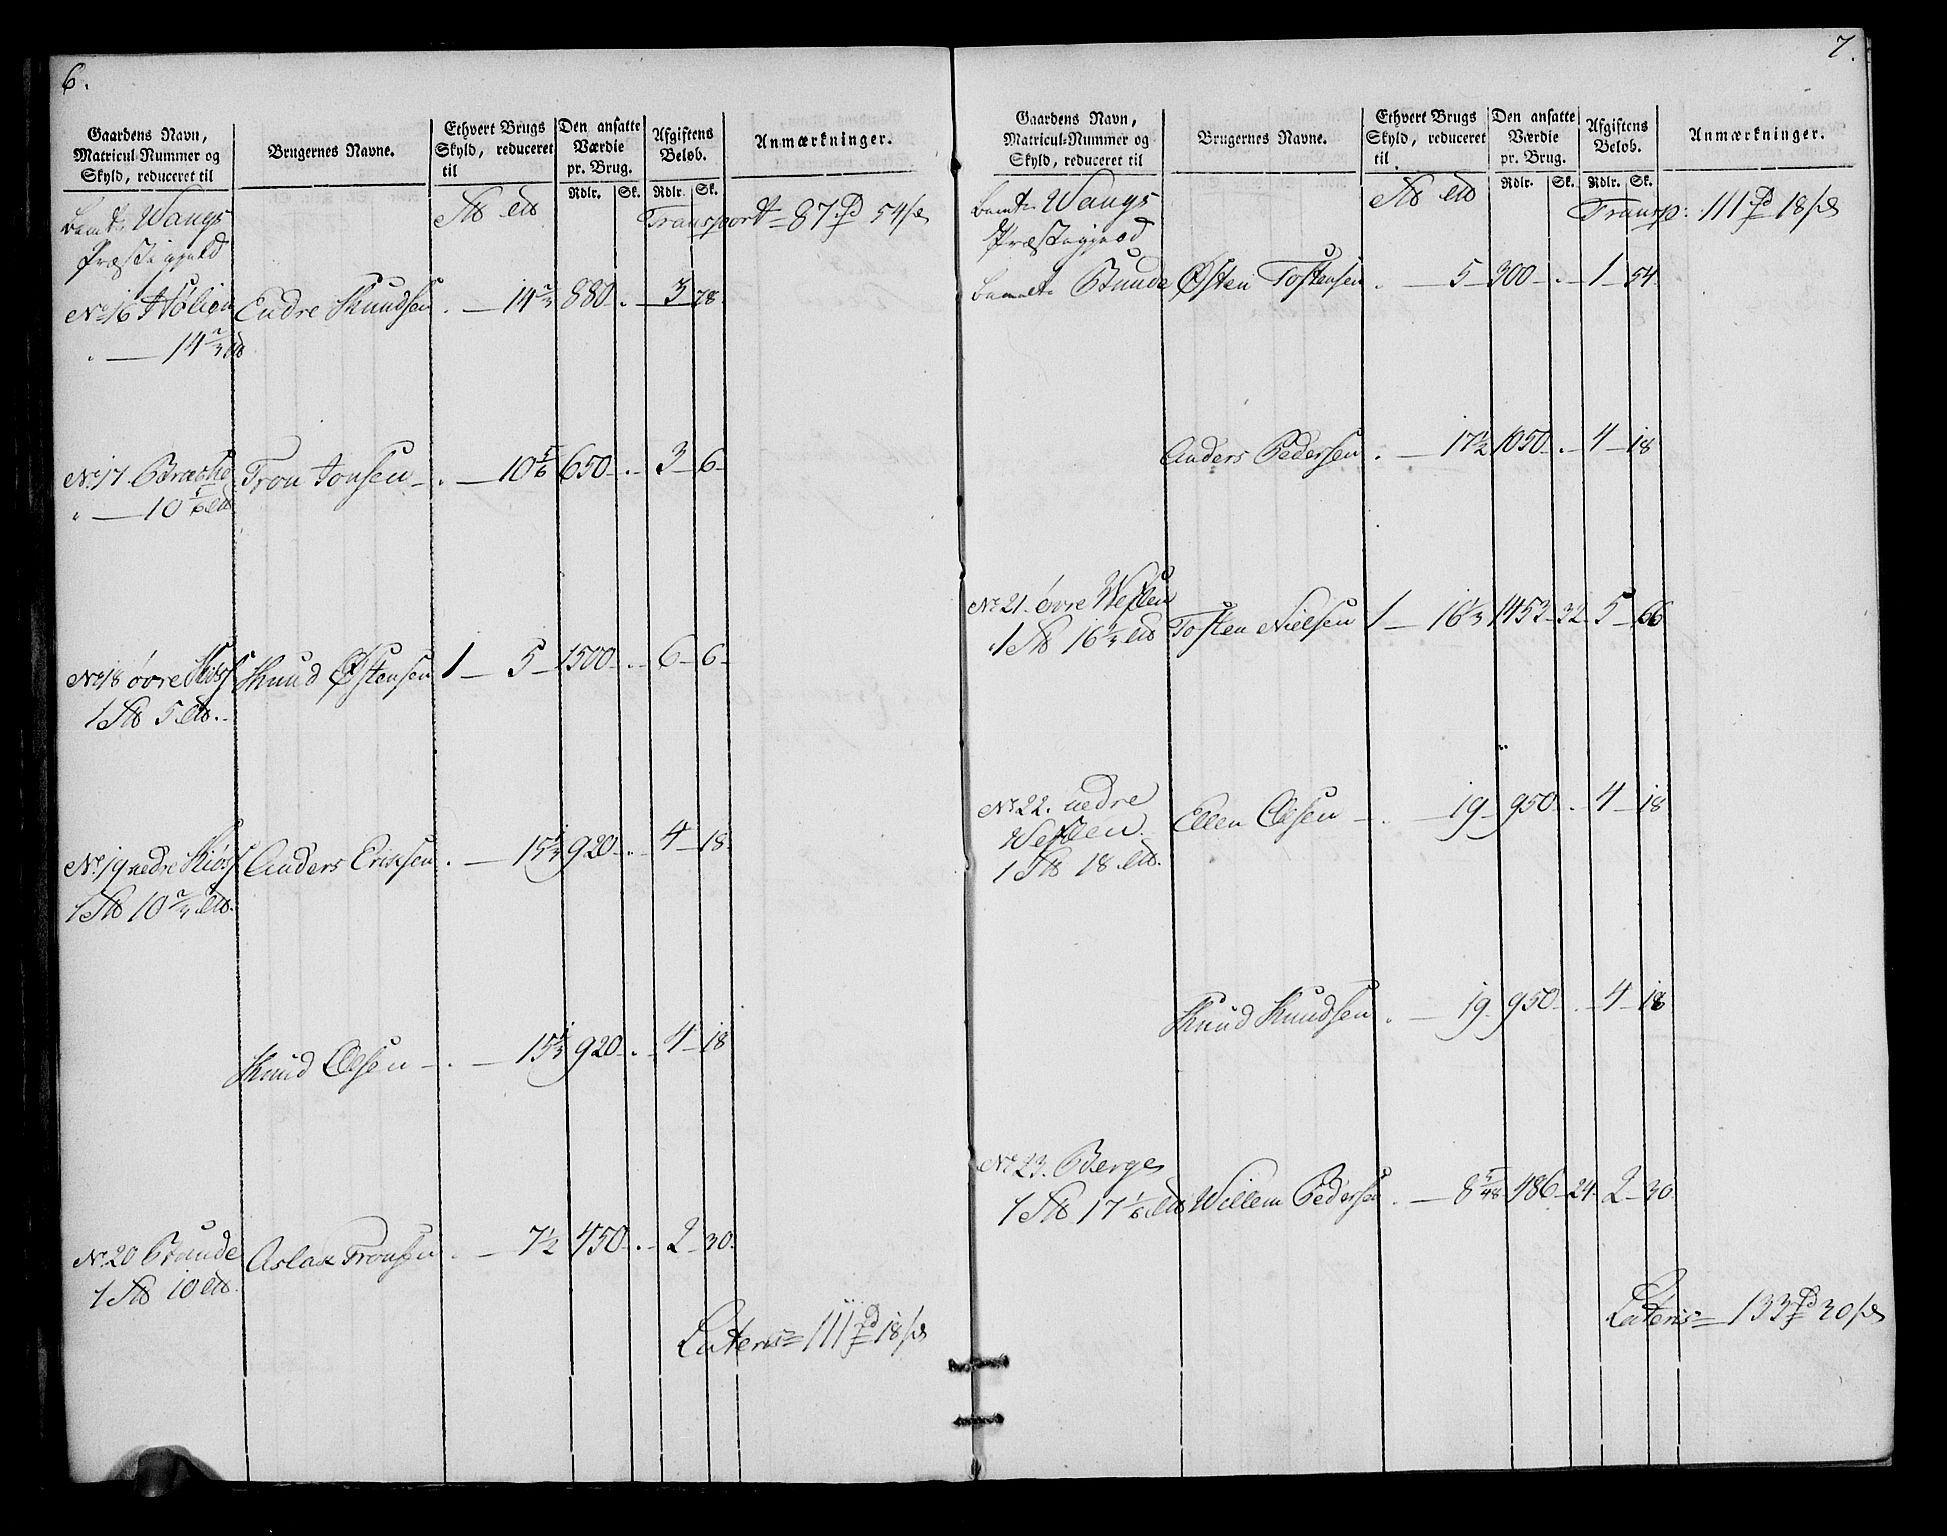 6.
Gaardens Navn, Matricul-Nummer og Skyld, reduceret til | Brugernes Navne. | Ethvert Brugs Skyld, reduceret til | Den ansatte Værdie pr. Brug. Rdlr. Sk. | Afgiftens Beløb. Rdlr. Sk. | Anmærkninger.
bemte Wangs Transport = 87 54
Præstegjeld
No 16 Endre Knudsen . — 14 2/3 880 . — 3 — 78
. — 14 2/3
No 17 Tron Jonsen . — 10 5/6 650 . — 3 — 6
. — 10 5/6
No 18 øvre Knud Østensen 1 — 5 — 1500 — 6 — 6
1 5
No 19 nedre Anders Eriksen . — 15 1/3 920 . — 4 — 18
1 10 2/3
Knud Olsen . — 15 1/3 920 . — 4 — 18
No 20 Bunde Aslak Tronsen . — 7 1/2 450 . — 2 — 30
1 10
Lateris = 111 18
7.
Gaardens Navn, Matricul-Nummer og Skyld, reduceret til | Brugernes Navne. | Ethvert Brugs Skyld, reduceret til | Den ansatte Værdie pr. Brug. Rdlr. Sk. | Afgiftens Beløb. Rdlr. Sk. | Anmærkninger.
bemte Wangs Transp: 111 18
Præstegjeld
bemelte Bunde Østen Tostensen . — 5 — 300 . — 1 — 54
Anders Pedersen . — 17 1/2 1050 . — 4 — 18
No 21. øvre Weflen Tosten Nielsen 1 — 16 2/3 1453 — 32 5 — 66
1 16 2/3
No 22. nedre Ellen Olsen . — 19 — 950 . — 4 — 18
Weflen
1 18
Knud Knudsen . — 19 950 . — 4 — 18
No 23. Berge
1 17 1/6 Willem Pedersen . — 8 5/48 486 — 24 2 — 30
Lateris = 133 30